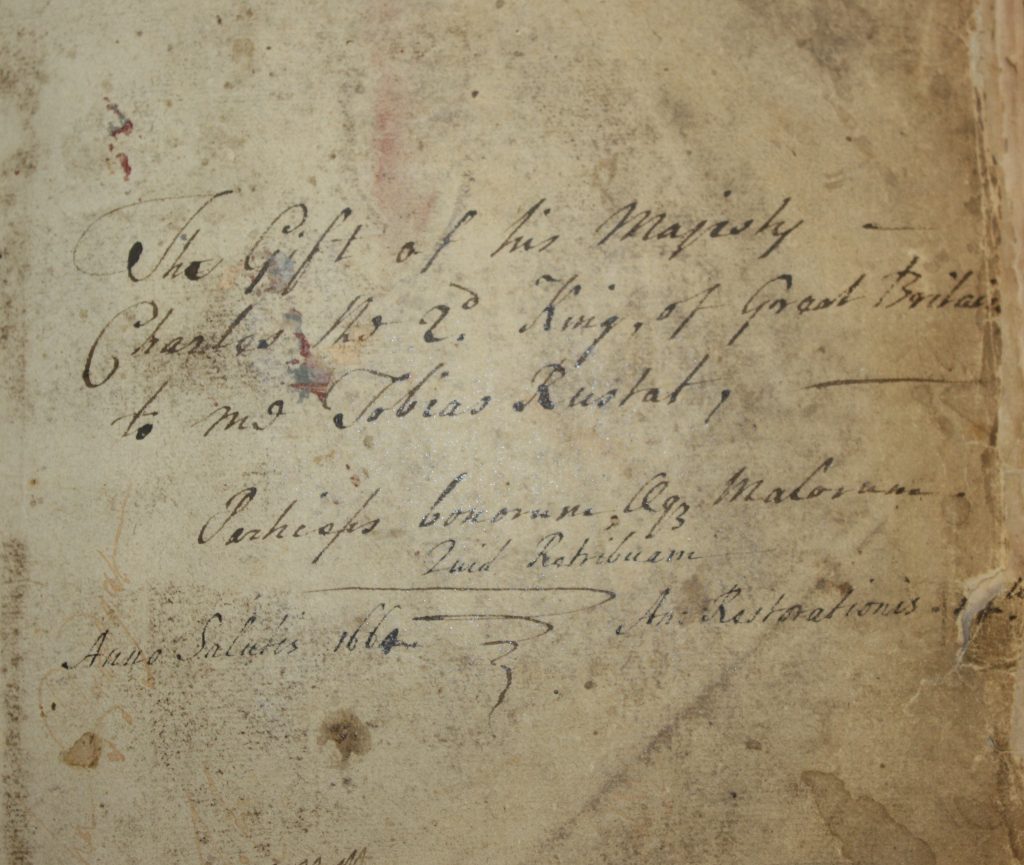 The Gift of his Majesty —
Charles the 2d. King, of Great Britai
to me Tobias Rustat, —
bonorum, Malorum.
Quid Retribuam
Anno Salutis 166 An: Restorationis